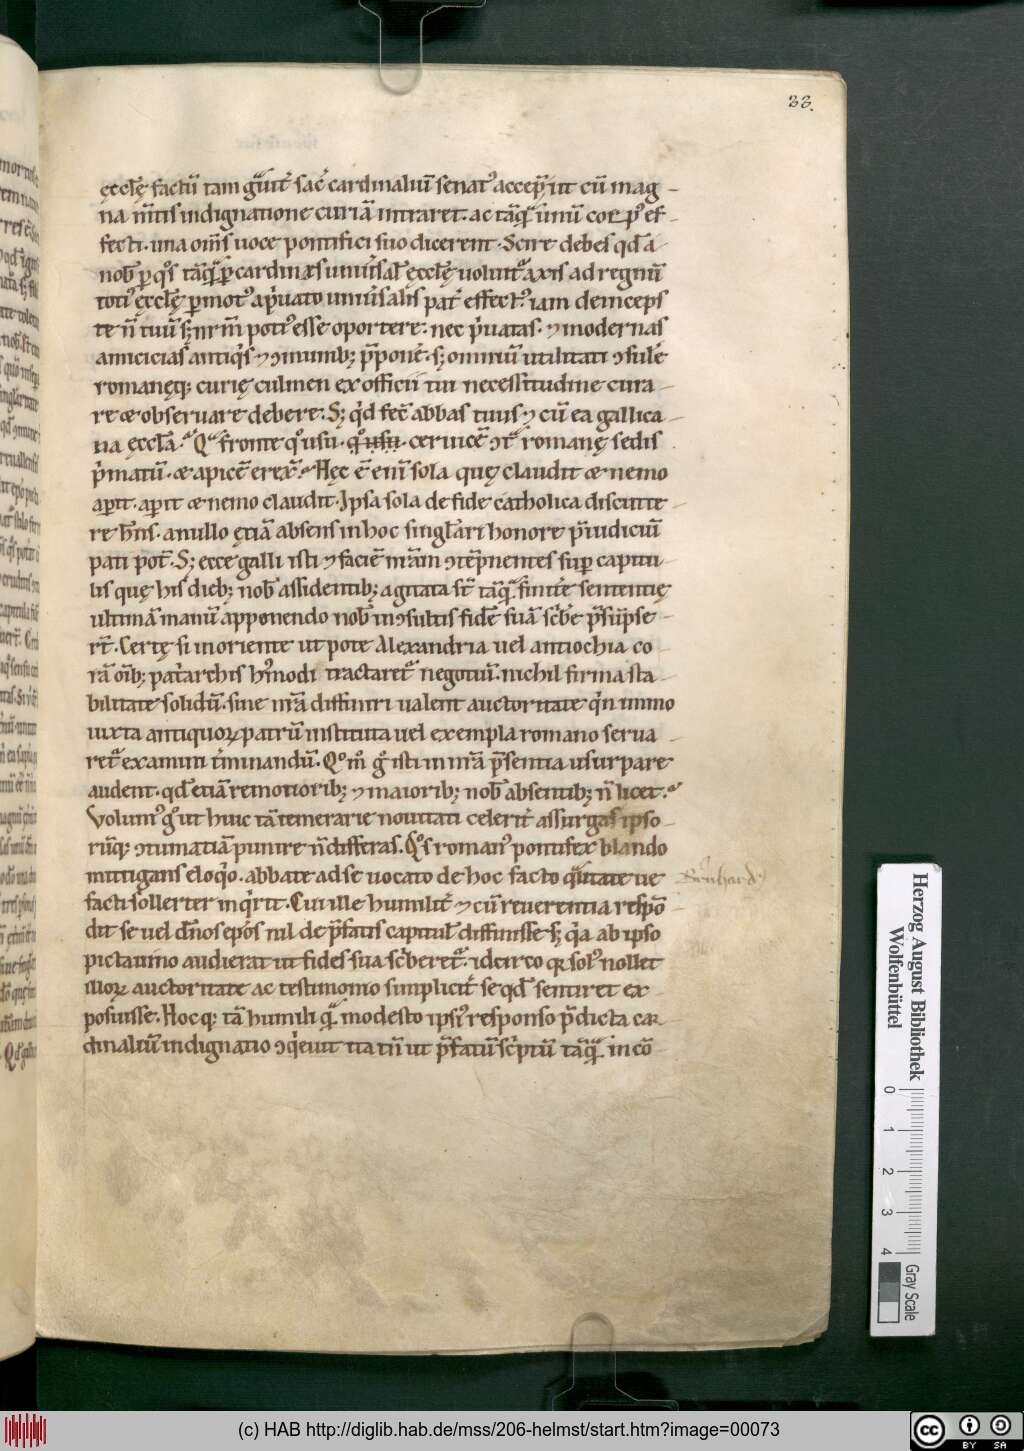 33.
ęcclę̄ factū tam g̾uit̾ sac̾ cardinaliū senat᷒ accep̄ ut cū mag-
na m̄tis indignatione curiā intraret. ac tāq̃ unū corp᷒ ef-
fecti. una om̄s uoce pontifici suo dicerent. Scire debes qd̄ a
nob̄ ꝑ q°s tāq̃ ꝑ cardines uniu̾sal̄ ęcclę̄ uoluit᷒ axis ad regnū
toti᷒ ęcclę̄ ꝑmot᷒ a pͥuato uniu̾salis pat̾ effect᷒ iam deinceps
te n̄ tuū sꝫ nr̄m poti᷒ esse oportere. nec pͥuatas ⁊ modernas
amicicias antiqͥs ⁊ ɔmunibꝫ p̄pone̾. sꝫ omniū utilitati ɔsule̾
romanęqꝫ curię culmen ex officii tui necessitudine cura-
re & obseruare debere. Sꝫ qͥd fec̄ abbas tuus ⁊ cū ea gallica-
na ęccl̄a. Qᵃ fronte q° usu q° usu ceruicē ɔt̾ romanę sedis
pͥmatū & apicē erex̾. Hęc ē eni̅ sola quę claudit & nemo
aꝑit. aꝑit & nemo claudit. Ipsa sola de fide catholica discute-
re h̄ns. a nullo ętiā absens in hoc singl̄ari honore p̄iudiciū
pati pot̄. Sꝫ ecce galli isti ⁊ faciē nr̄am ɔtēpnentes suꝑ capitu-
lis quę his diebꝫ nob̄ assidentibꝫ agitata st̄ tāq̃ finite̾ sententię
ultimā manū apponendo nob̄ inɔsultis fidē suā sc̄be̾ p̄sūpse-
rt̄. Certę si in oriente ut pote Alexandria uel antiochia co-
rā oīb; pat̾archis h᷒modi tractaret᷒ negotiū. nichil firma sta-
bilitate solidū. sine nr̄a diffiniri ualent auctoritate qͥn immo
iuxta antiquoꝝ patrū instituta uel exempla romano serua-
ret᷒ examini t̾minandū. Q°m° g° isti in nr̄a p̄sentia usurpare
audent. qd̄ etiā remotioribꝫ ⁊ maioribꝫ nob̄ absentibꝫ n̄ licet.
Volum᷒ g° ut huic tā temerarie nouitati celerit̾ assurgas ipso-
rūqꝫ ɔtumatiā punire n̄ differas. Q°s roman᷒ pontifex blando
mitigans eloqͥo. abbate ad se uocato de hoc facto q̃uitate ue
facti sollerter inqͥrit. Cui ille humilit̾ ⁊ cū reuerentia respō-
dit se uel dn̄os ep̄os nil de p̄fatis capitul̄ diffinisse sꝫ qͥa ab ipso
pictauino audierat ut fides sua sc̄beret᷒. idcirco qꝫ sol᷒ nollet
illoꝝ auctoritate ac testimonio simplicit̾ se qd̄ sentiret ex-
posuisse. Hoc qꝫ tā humili q̃ modesto ipsi᷒ responso p̄dicta car-
dinaliū indignatio ɔqͥeuit ita tn̄ ut p̄fatū scͥptū tāq̃ in cō-
Bernhard᷒
Herzog August Bibliothek
Wolfenbüttel
0 1 2 3 4
Gray Scale
(c) HAB http://diglib.hab.de/mss/206-helmst/start.htm?image=00073
cc BY SA